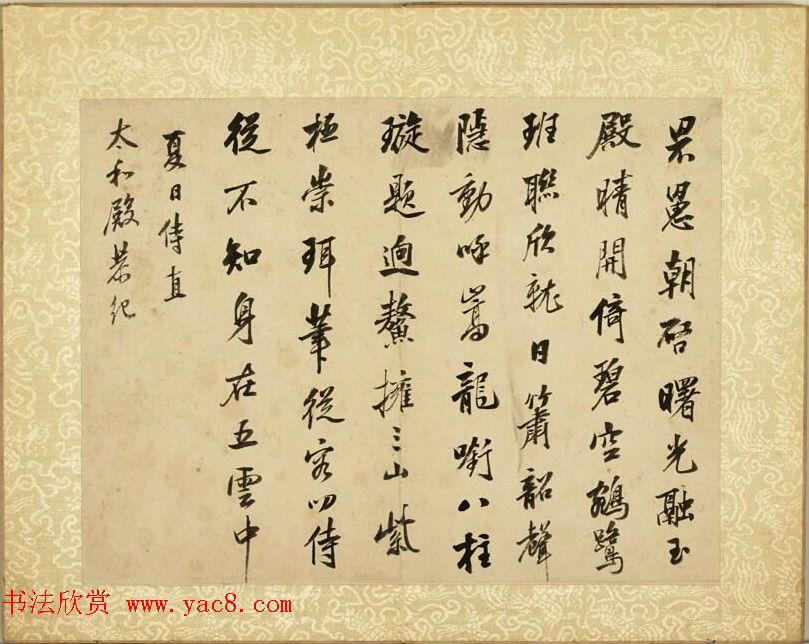 罘罳朝啓曙光融玉
殿晴開倚碧空鵷鷺
班聯欣就日簫韶聲
隱動呼嵩龍銜八柱
璇題迥鰲擁三山紫
極崇珥筆從容叨侍
從不知身在五雲中
夏日侍直
太和殿恭紀
书法欣赏 www.yac8.com